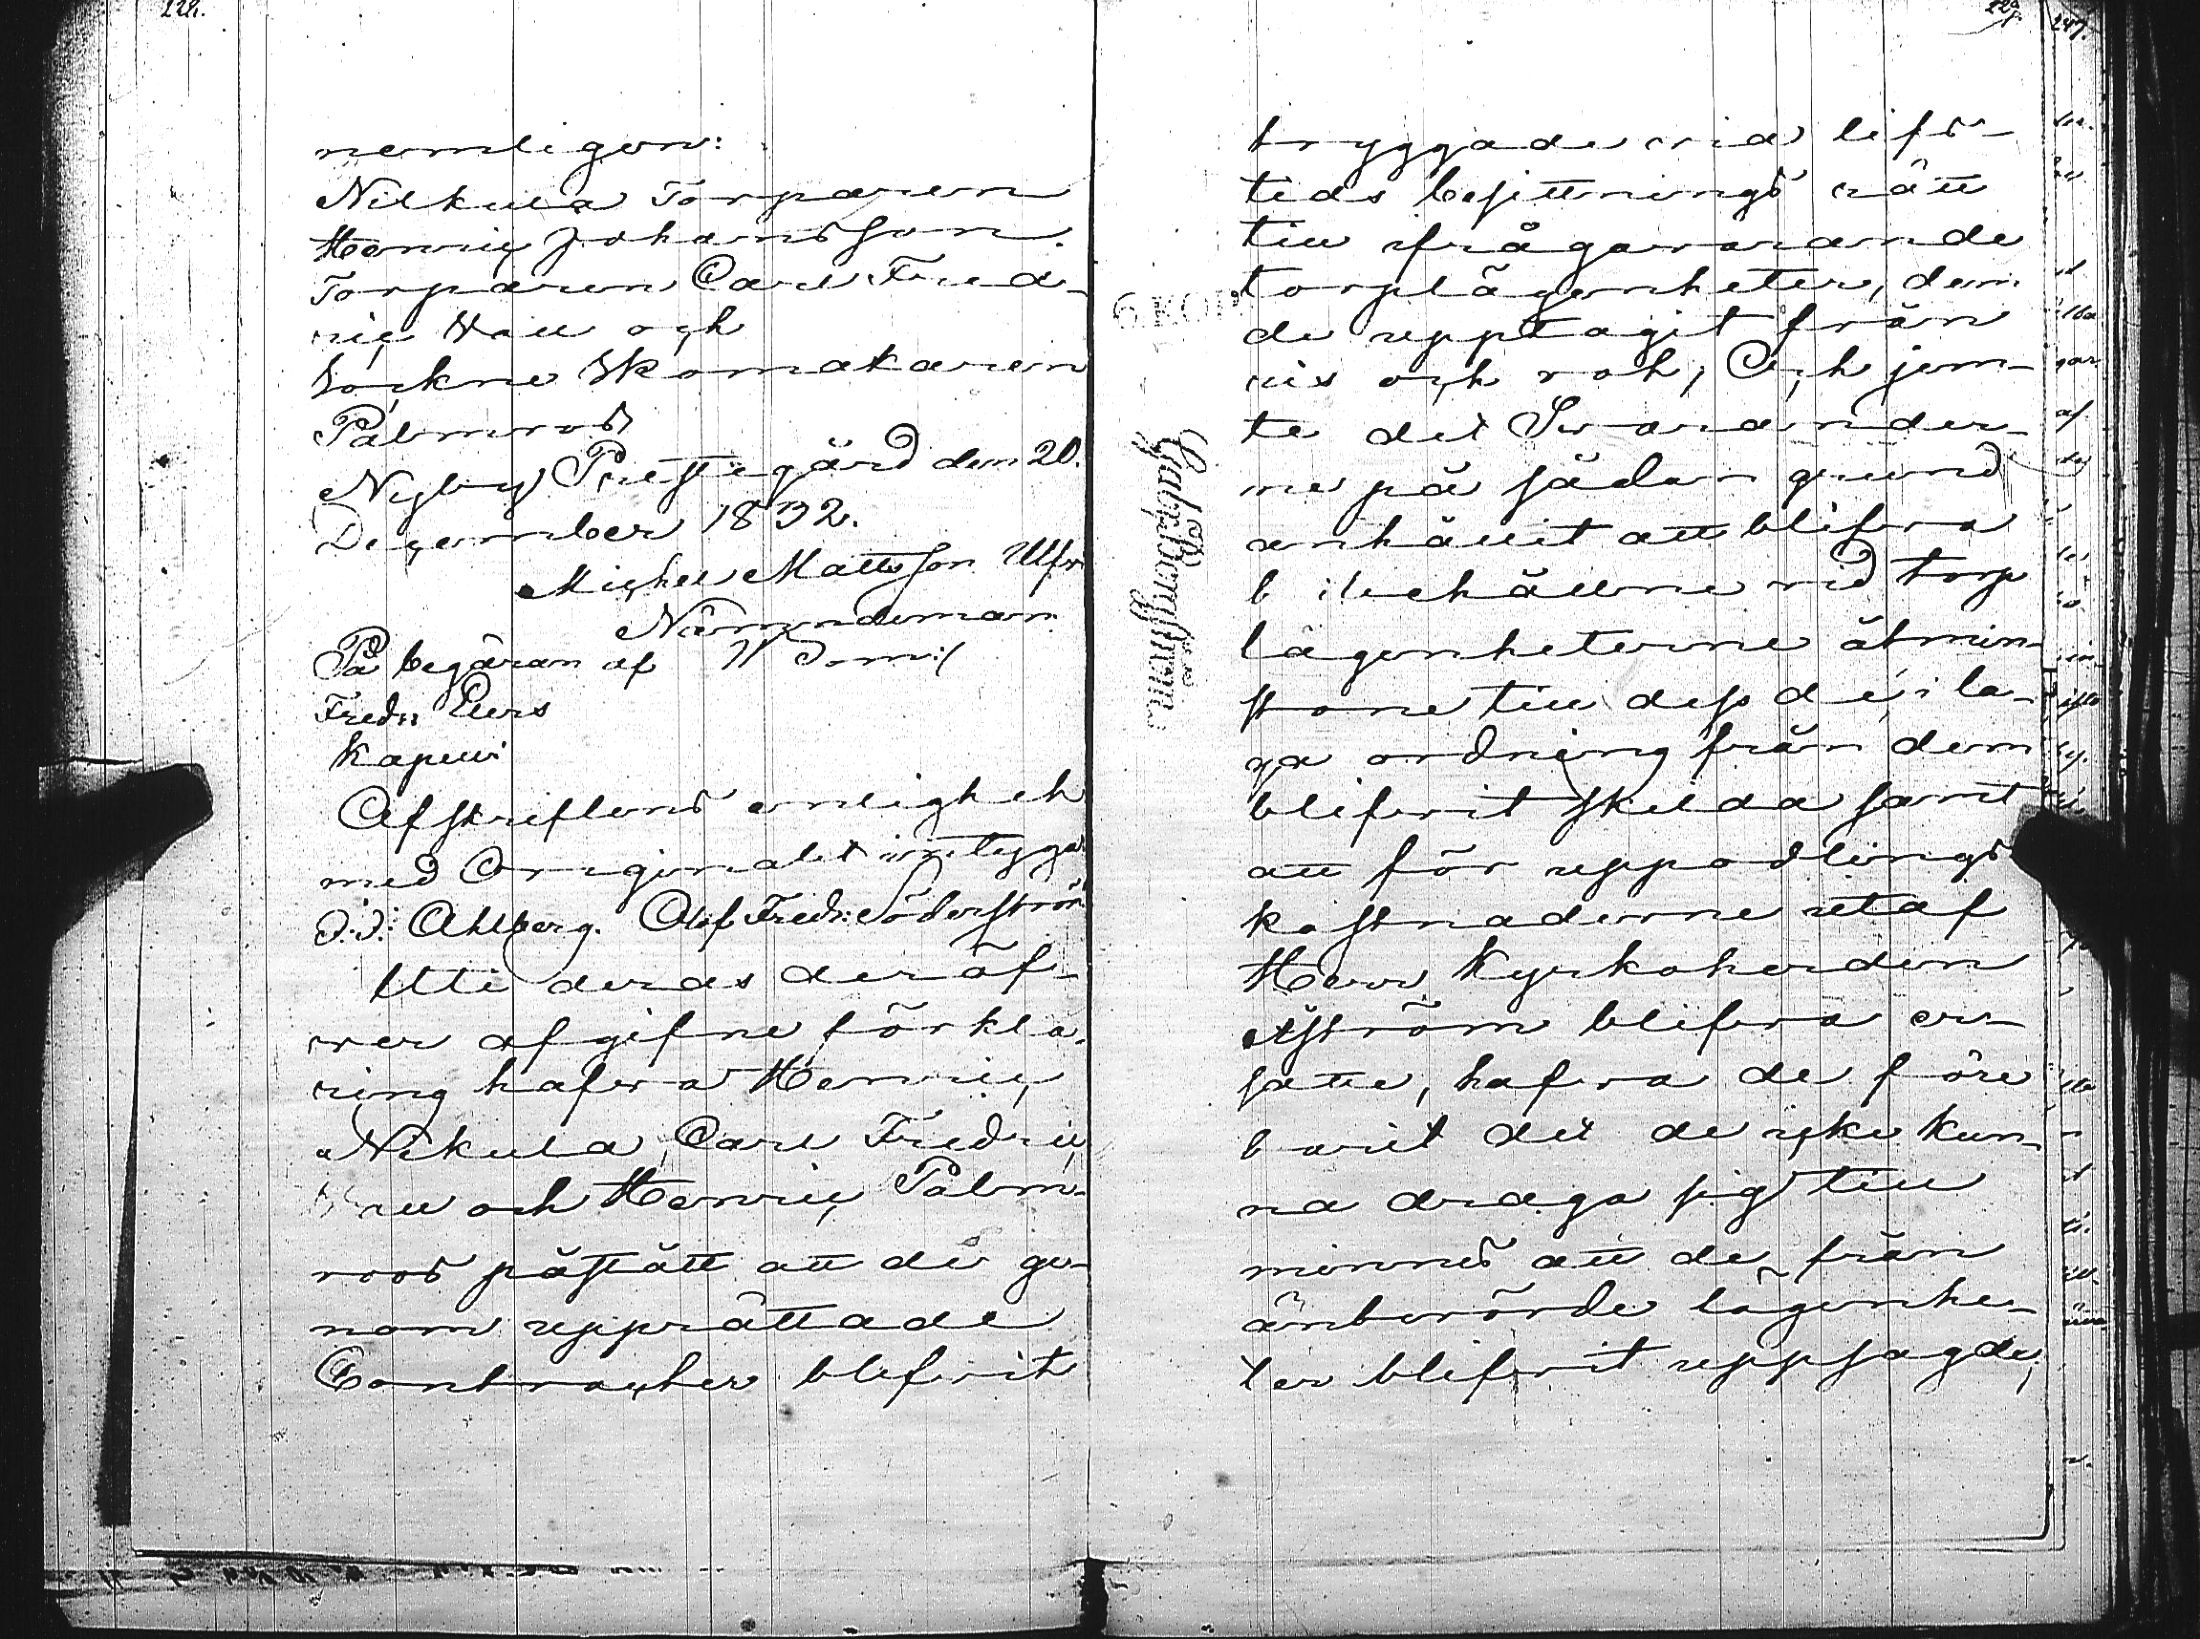 228.
nemligen:
Nikula Torparen
Henric Johansson.
Torparen Carl Fred-
ric och
Sockne Skomakaren
Palmroos
Nyby Prestegård den 20.
December 1832.
Michel Mattsson Ulfv
Nämndeman
På begäran af
Fredr: Elers
Kapell
Afskriftens enlighet
med Originalet intyga
Ahlberg. Olof Fredr: Söderström
Uti deras deröf-
ver afgifne förkla-
ring hafva Henric
Nikula, Carl Fredric
och Henric Palm-
roos påstått att de ge-
nom upprättade
Contracter blifvit
229.
tryggade vid lifs-
tids besittnings rätt
till ifrågavarande
torplägenheter, dem
de upptagit från
ris och roh; Och jem-
te det Svarander-
ne på sådan grund
anhållit att blifva
bibehållne vid torp
lägenheterne åtmin-
stone till dess de i la-
ga ordning från dem
blifvit skilda samt
att för uppodlings
kostnaderne utaf
Herr Kyrkoherden
Åström blifva er-
satte, hafva de före
burit det de icke kun-
na draga sig till
minnes att de från
änberörde lägenhe-
ter blifvit uppsagde,
247.